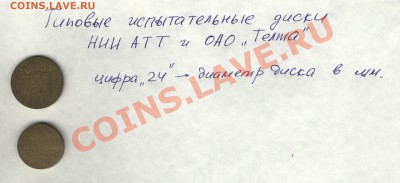 COINS.LAVE.RU
Типовые испытательные диски
НИИ АТТ и ОАО „Телта"
цифра „24" – диаметр диска в мм.
COINS.LAVE.RU
COINS.LAVE.RU